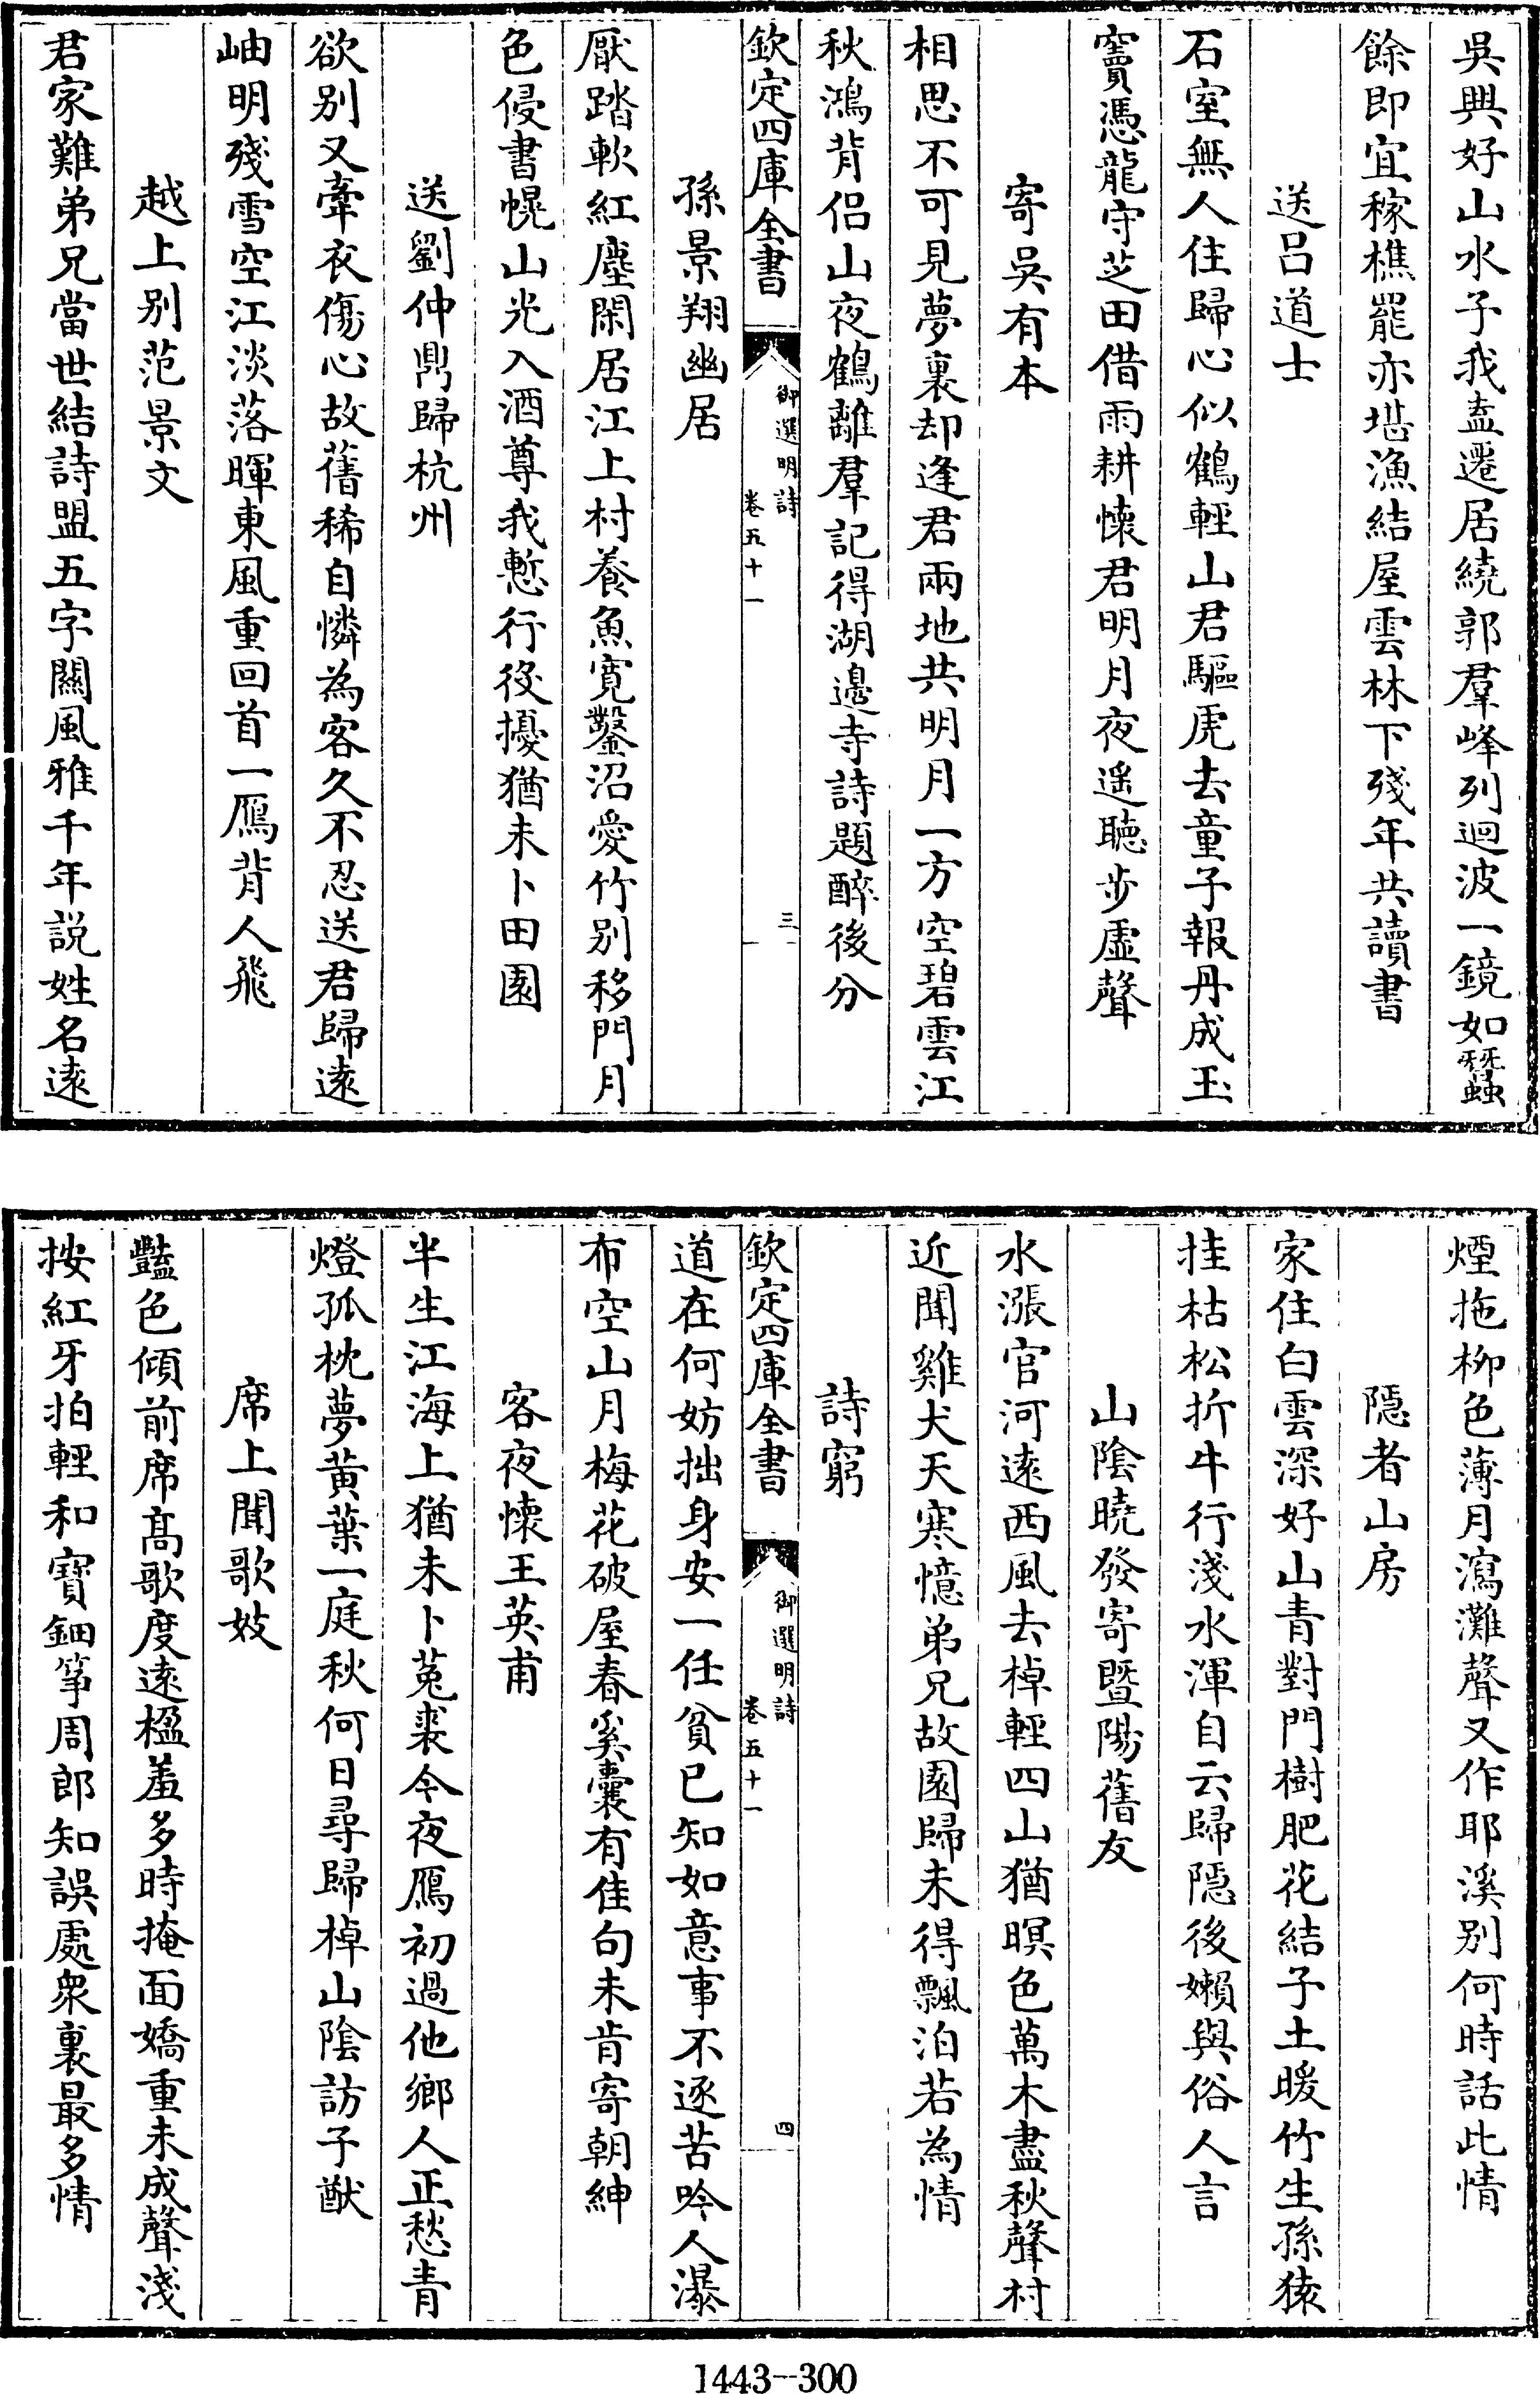 吳興好山水子我盍遷居繞郭羣峰列迴波一鏡如蠶
餘即宜稼樵罷亦堪漁結屋雲林下殘年共讀書
送呂道士
石室無人住歸心似鶴輕山君驅虎去童子報丹成玉
竇憑龍守芝田借雨耕懷君明月夜遥聴步虛聲
寄吳有本
相思不可見夢裏却逢君兩地共明月一方空碧雲江
秋鴻背侣山夜鶴離羣記得湖邊寺詩題醉後分
欽定四庫全書
御選明詩
卷五十一
三
孫景翔幽居
厭踏軟紅塵閑居江上村養魚寛鑿沼愛竹別移門月
色侵書幌山光入酒尊我慙行役擾猶未卜田園
送劉仲鼎歸杭州
欲别又牽衣傷心故舊稀自憐為客久不忍送君歸遠
岫明殘雪空江淡落暉東風重回首一鴈背人飛
越上别范景文
君家難弟兄當世結詩盟五字關風雅千年説姓名遠
煙拖柳色薄月瀉灘聲又作耶溪别何時話此情
隠者山房
家住白雲深好山青對門樹肥花結子土暖竹生孫猿
挂枯松折牛行淺水渾自云歸隠後嬾與俗人言
山陰曉發寄暨陽舊友
水漲官河遠西風去棹輕四山猶暝色萬木盡秋聲村
近聞雞犬天寒憶弟兄故園歸未得飄泊若為情
詩窮
欽定四庫全書
御選明詩
卷五十一
四
道在何妨拙身安一任貧已知如意事不逐苦吟人瀑
布空山月梅花破屋春奚囊有佳句未肯寄朝紳
客夜懷王英甫
半生江海上猶未卜菟裘今夜鴈初過他鄉人正愁青
燈孤枕夢黄葉一庭秋何日尋歸棹山陰訪子猷
席上聞歌妓
豔色傾前席髙歌度遠楹羞多時掩面嬌重未成聲淺
按紅牙拍輕和寶鈿箏周郎知誤處衆裏最多情
1443—300